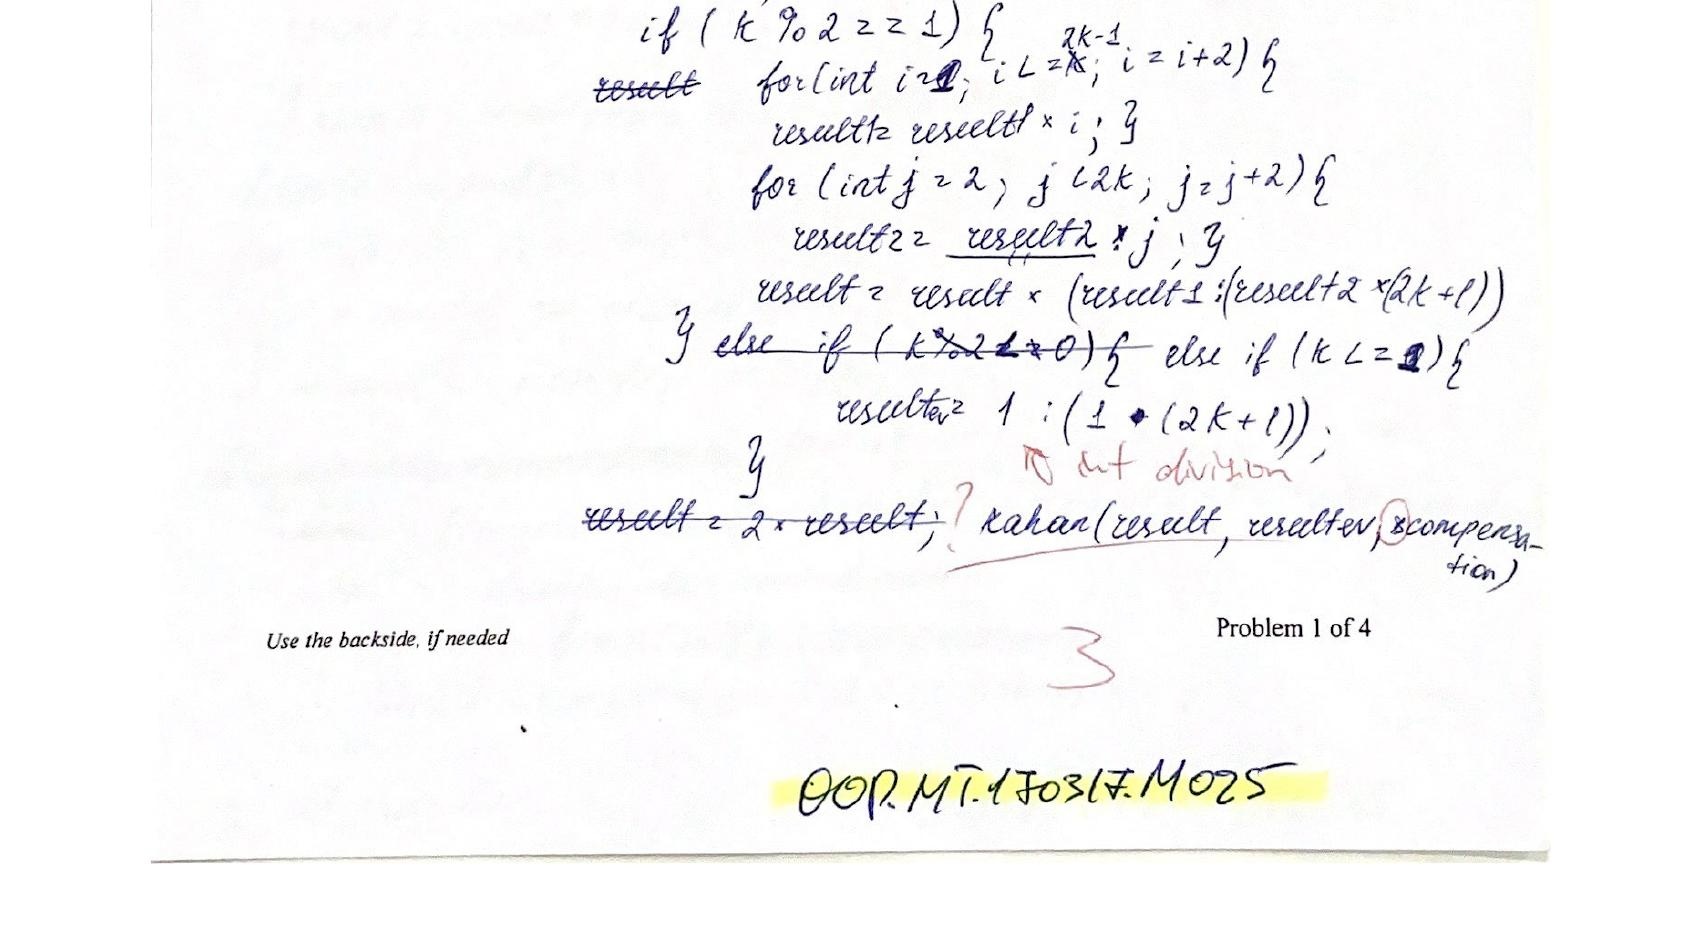 if ( k % 2 == 1) {
result for(int i=1; i <= 2k-1; i = i+2) {
result1= result1 * i; }
for (int j = 2; j < 2k; j=j+2) {
result2= result2 * j; }
result = result * (result1:(result2 *(2k+1))
} else if ( k%2 == 0) { else if (k <= 1) {
resultev= 1 : (1 * (2k+1));
int division
}
result = 2 * result; ? kahan(result, resultev, compensa-
tion)
Use the backside, if needed
Problem 1 of 4
3
OOP.MT.170317.M025